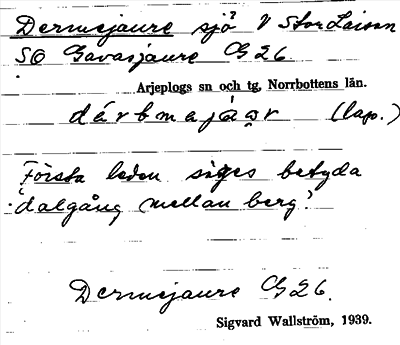 Dermejaure sjö? V Stor Laisan
SO Gavasjaure G 26.
Arjeplogs sn och tg, Norrbottens län.
dárbmajáu̯r (lap.)
Första leden säges betyda
'dalgång mellan berg'.
Dermejaure G 26.
Sigvard Wallström, 1939.